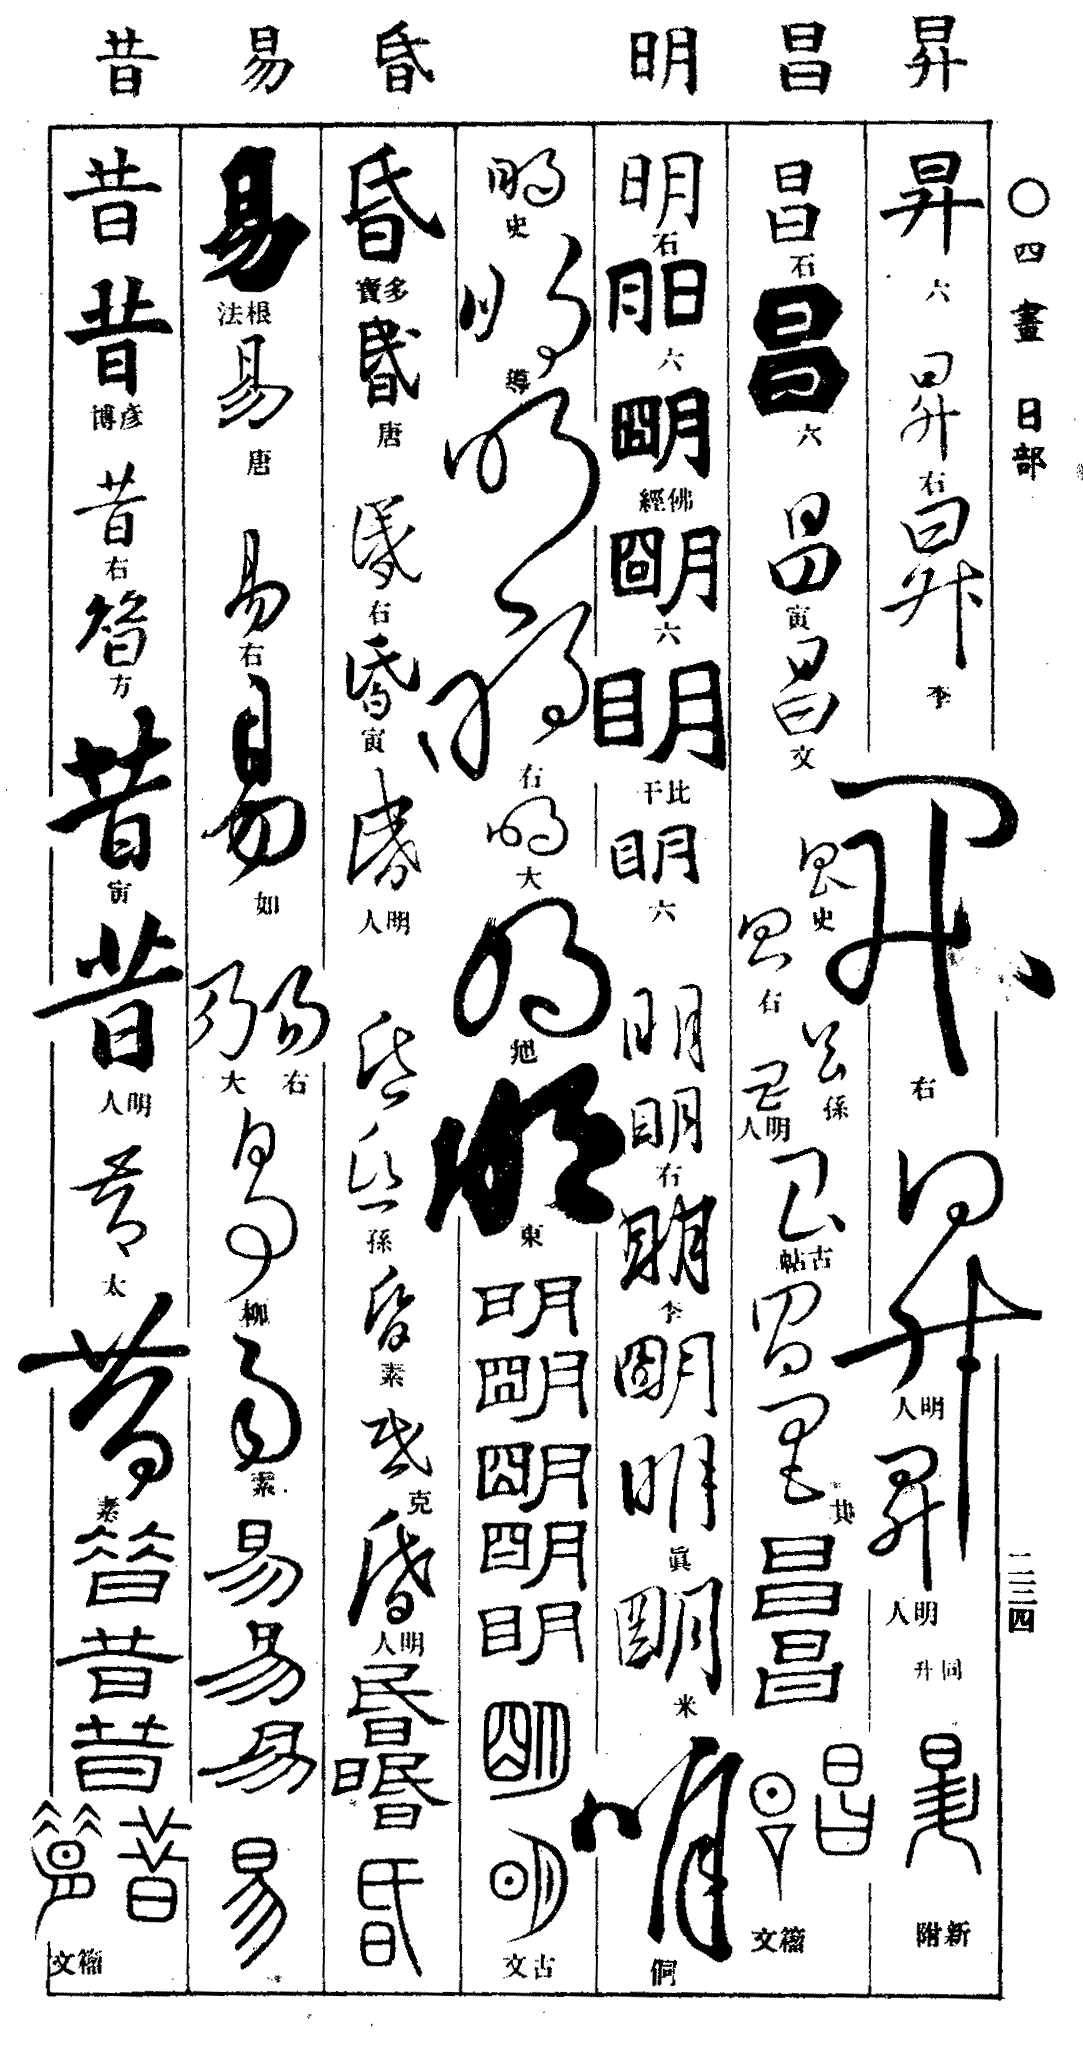 〇四畫 日部
二三四
昇
昌
明
昏
易
昔
昇
六
昇
右
昇
李
昇
右
昇
明人
昇
明人
同升
昇
新附
昌
石
昌
六
昌
寅
昌
文
昌
史
昌
右
昌
孫
昌
明人
昌
古帖
昌
昌
其
昌
昌
昌
昌
籀文
明
石
明
六
明
佛經
明
六
明
比干
明
六
明
明
右
明
李
明
明
眞
明
米
明
侗
明
史
明
導
明
明
右
明
大
明
旭
明
東
明
明
明
明
明
明
明
古文
昏
多寶
昏
唐
昏
右
昏
寅
昏
明人
昏
昏
孫
昏
素
昏
克
昏
明人
昏
昏
昏
易
根法
易
唐
易
右
易
如
易
右
易
大
易
柳
易
素
易
易
易
易
昔
昔
彦博
昔
右
昔
方
昔
寅
昔
明人
昔
太
昔
素
昔
昔
昔
昔
昔
籀文